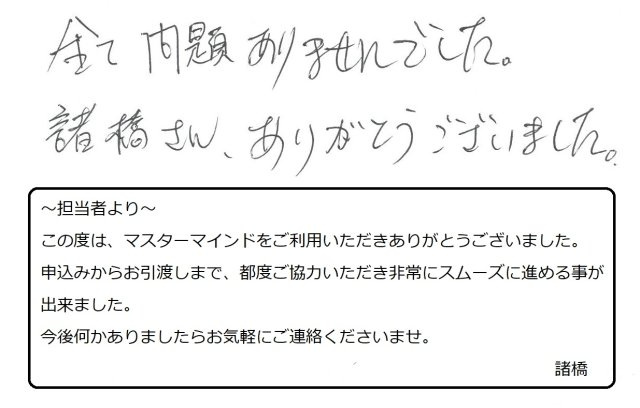 全て問題ありませんでした。
諸橋さん、ありがとうございました。
～担当者より～
この度は、マスターマインドをご利用いただきありがとうございました。
申込みからお引渡しまで、都度ご協力いただき非常にスムーズに進める事が
出来ました。
今後何かありましたらお気軽にご連絡くださいませ。
諸橋